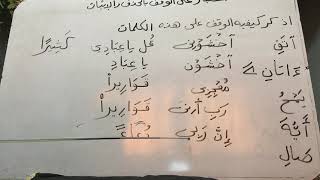 على الوقف بالحذف والإثبات
اذكر كيفية الوقف على هذه الكلمات
اتق اخْشَوْنِي قُل يا عبادي كثيرًا
ءاتان اخْشَوْن يا عبادِ
قواريراْ
أيّه ربي أرني قواريراْ
إنّ ربي دعاءً
صالِ